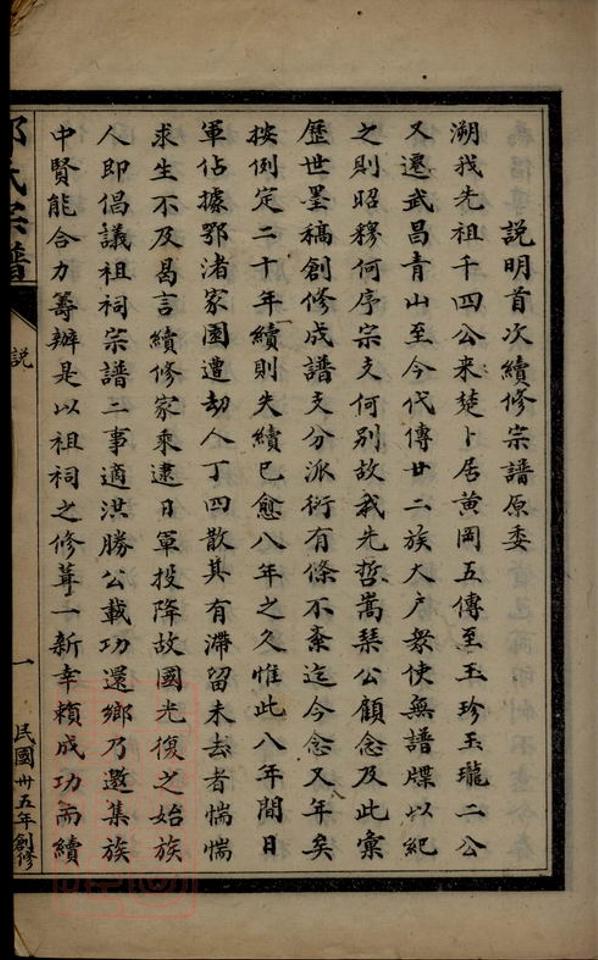 說明首次續修宗譜原委
溯我先祖千四公來楚卜居黃岡五傳至玉珍玉瓏二公
又遷武昌青山至今代傳廿二族大户衆使無譜牒以紀
之則昭穆何序宗支何別故我先哲嵩琹公顧念及此彙
歷世墨稿創修成譜支分派衍有條不紊迄今念又年矣
按例定二十年一續則失續已愈八年之久惟此八年間日
軍佔據鄂渚家園遭劫人丁四散其有滯留未去者惴惴
求生不及曷言續修家乘逮日軍投降故國光復之始族
人即倡議祖祠宗譜二事適洪勝公載功還鄉乃邀集族
中賢能合力籌辦是以祖祠之修葺一新幸賴成功而續
氏宗譜
説
一
民國卅五年創修